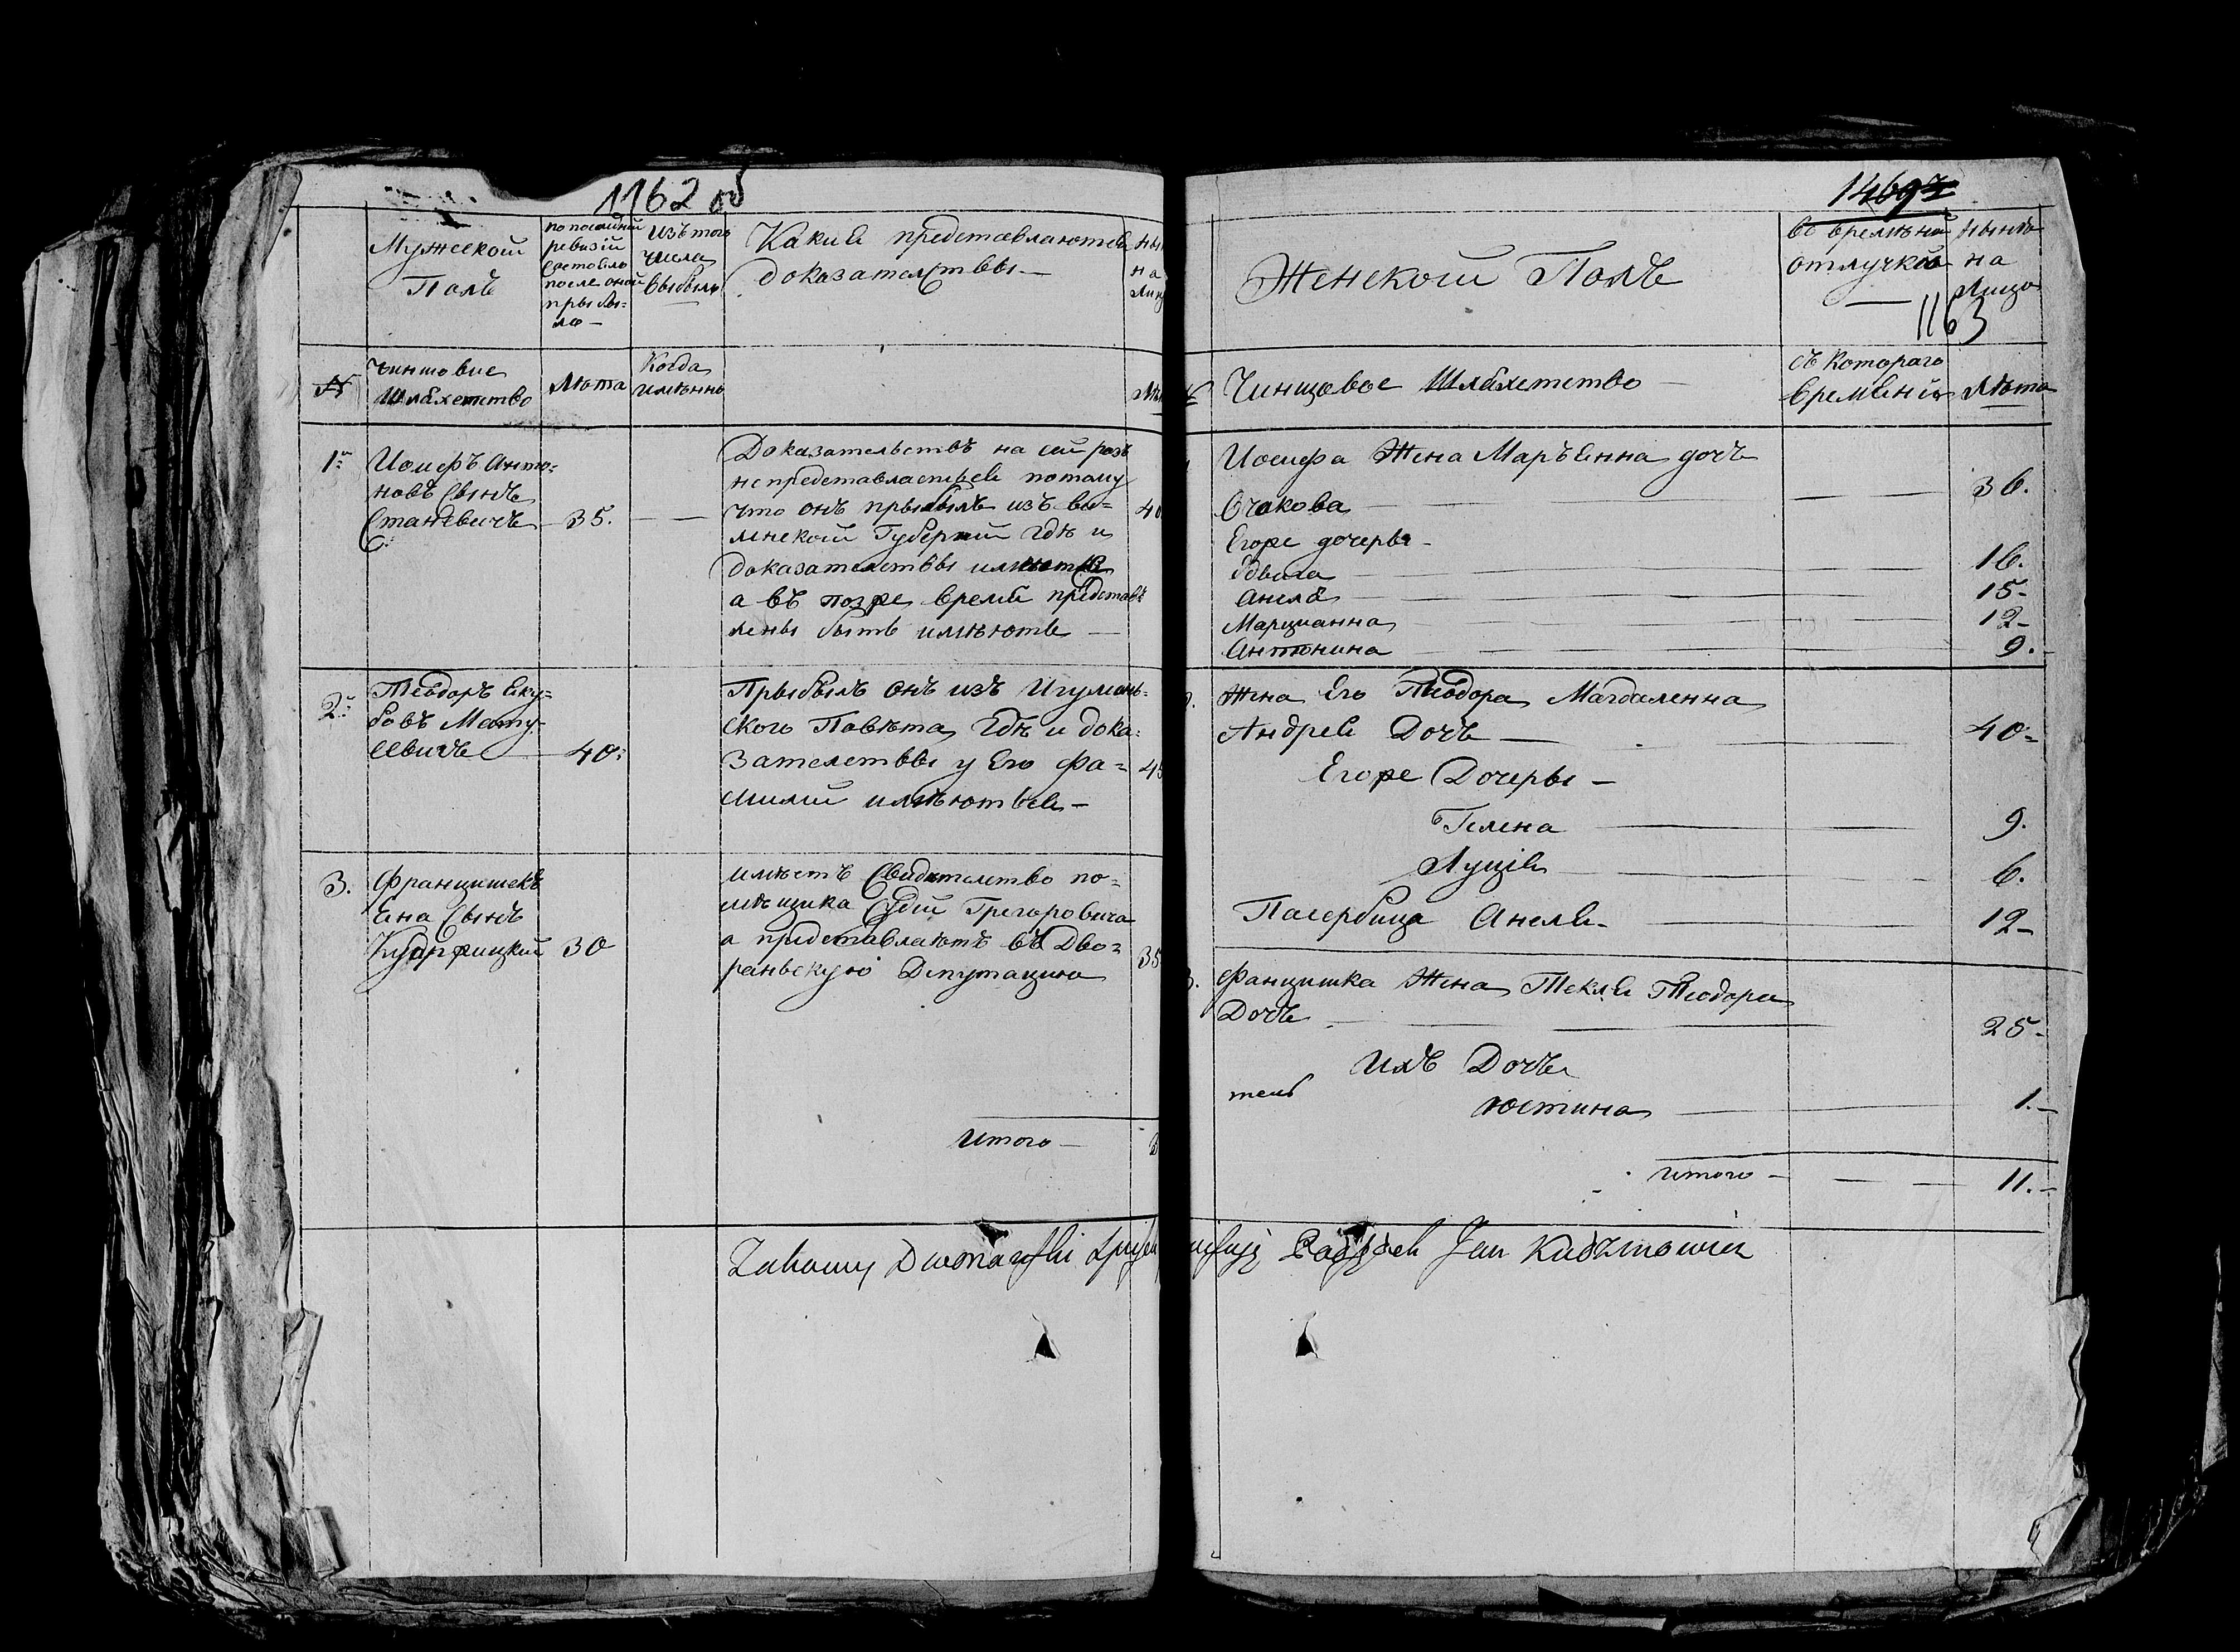 1162 об
Мужеской
Полъ
по последней
ревизіи
состояло
после оной
прыбы-
ло —
Изъ того
числа
выбыло
Какия представляются
доказателствы —
ны
на
лиц
№
Чиншовие
Шляхетство
Лѣта
Когда
имѣнно
Лѣ
1й
Иосифъ Анто-
новъ Сынъ
Станевичъ — 35.
Доказательствъ на сей разъ
непредставляетъся потому
что онъ прыбылъ изъ ви-
ленской Губерніи гдѣ и
доказателствы имѣются
а въ позже время представъ
лены быть имѣютъ —
40
2й
Теодоръ Яку-
бовъ Мату-
севичъ — 40:
Прыбылъ онъ изъ Игумень-
ского Повѣта, гдѣ и дока-
зателствы у Его фа-
милии имѣютъся —
45
3.
Францишекъ
Яна Сынъ
30
имѣетъ Свидѣтелство по-
мѣщика Судіи Грегоровича
а представлаетъ въ Дво-
раньскую Депутацию
35
Итого —
3
1163
Женской Полъ
во времѣной
отлучке
—
нынѣ
на
Лицо
Чиншовое Шляхетство —
съ Котораго
времѣни
Лѣта
Иосифа Жена Маръянна дочъ
Очакова — 36.
Егоже дочеры —
16.
Анеля — 15-
Марцианна 12-
Антонина — 9.
Жена Его Теодора Магдаленна
Андрея Дочъ — 40-
Егоже Дочеры —
Гелена — 9.
Луція — 6.
Пасербица Анеля — 12-
Фанцишка Жена Текля Теодора
Дочъ — 25-
Ихъ Дочъ
Юстина — 1.-
Итого — 11.-
Jan